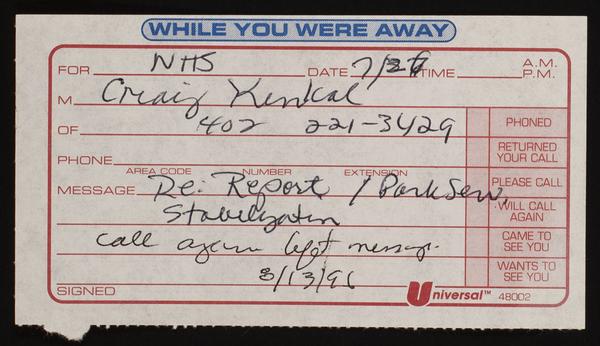 WHILE YOU WERE AWAY
FOR NHS DATE 7/27 TIME A.M. P.M.
M Craig Kenkel
OF 402 221-3429 PHONED
PHONE RETURNED YOUR CALL
AREA CODE NUMBER EXTENSION
MESSAGE Re: Report / Park Serv. PLEASE CALL
Stabilization WILL CALL AGAIN
call again left message. CAME TO SEE YOU
8/13/96 WANTS TO SEE YOU
SIGNED Universal™ 48002